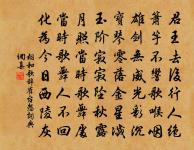 君王去後行人絕
簫竽不響歌喉咽
雄劍無威光彩沉
寶琴零落金星滅
玉階寂寂墜秋露
月照當時歌舞處
當時歌舞人不回
化為今日西陵灰
相和歌辭雀台怨詞典
網集